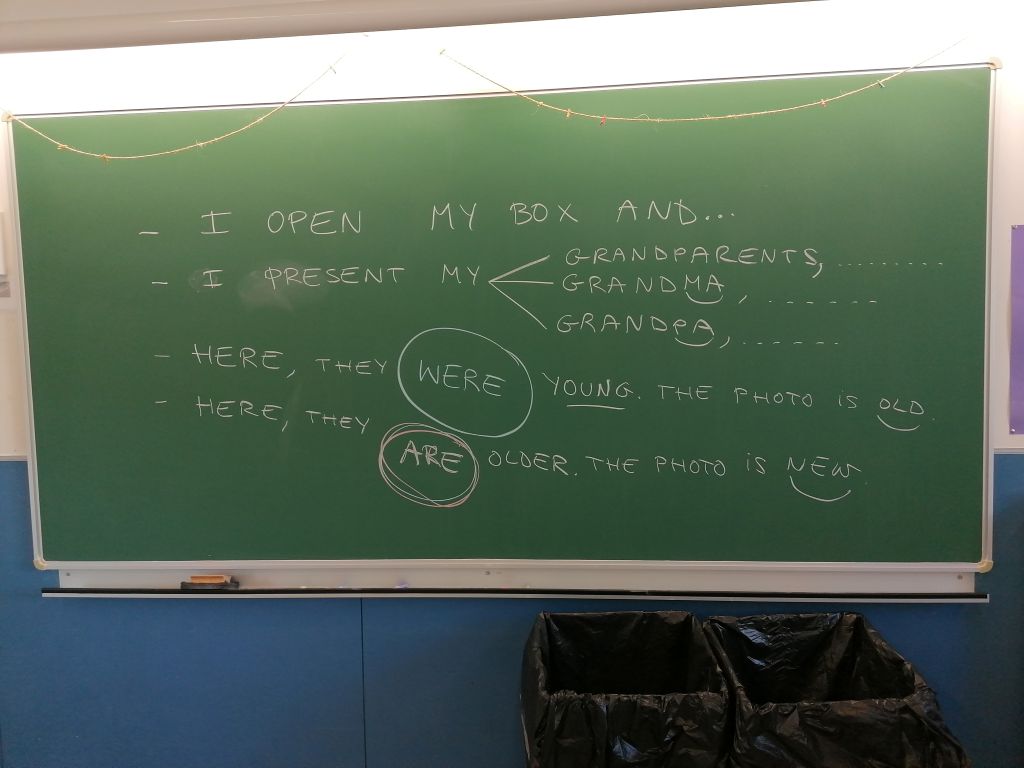 - I OPEN MY BOX AND...
- I PRESENT MY
GRANDPARENTS, .........
GRANDMA, .......
GRANDPA, ......
- HERE, THEY WERE YOUNG. THE PHOTO IS OLD.
- HERE, THEY ARE OLDER. THE PHOTO IS NEW.